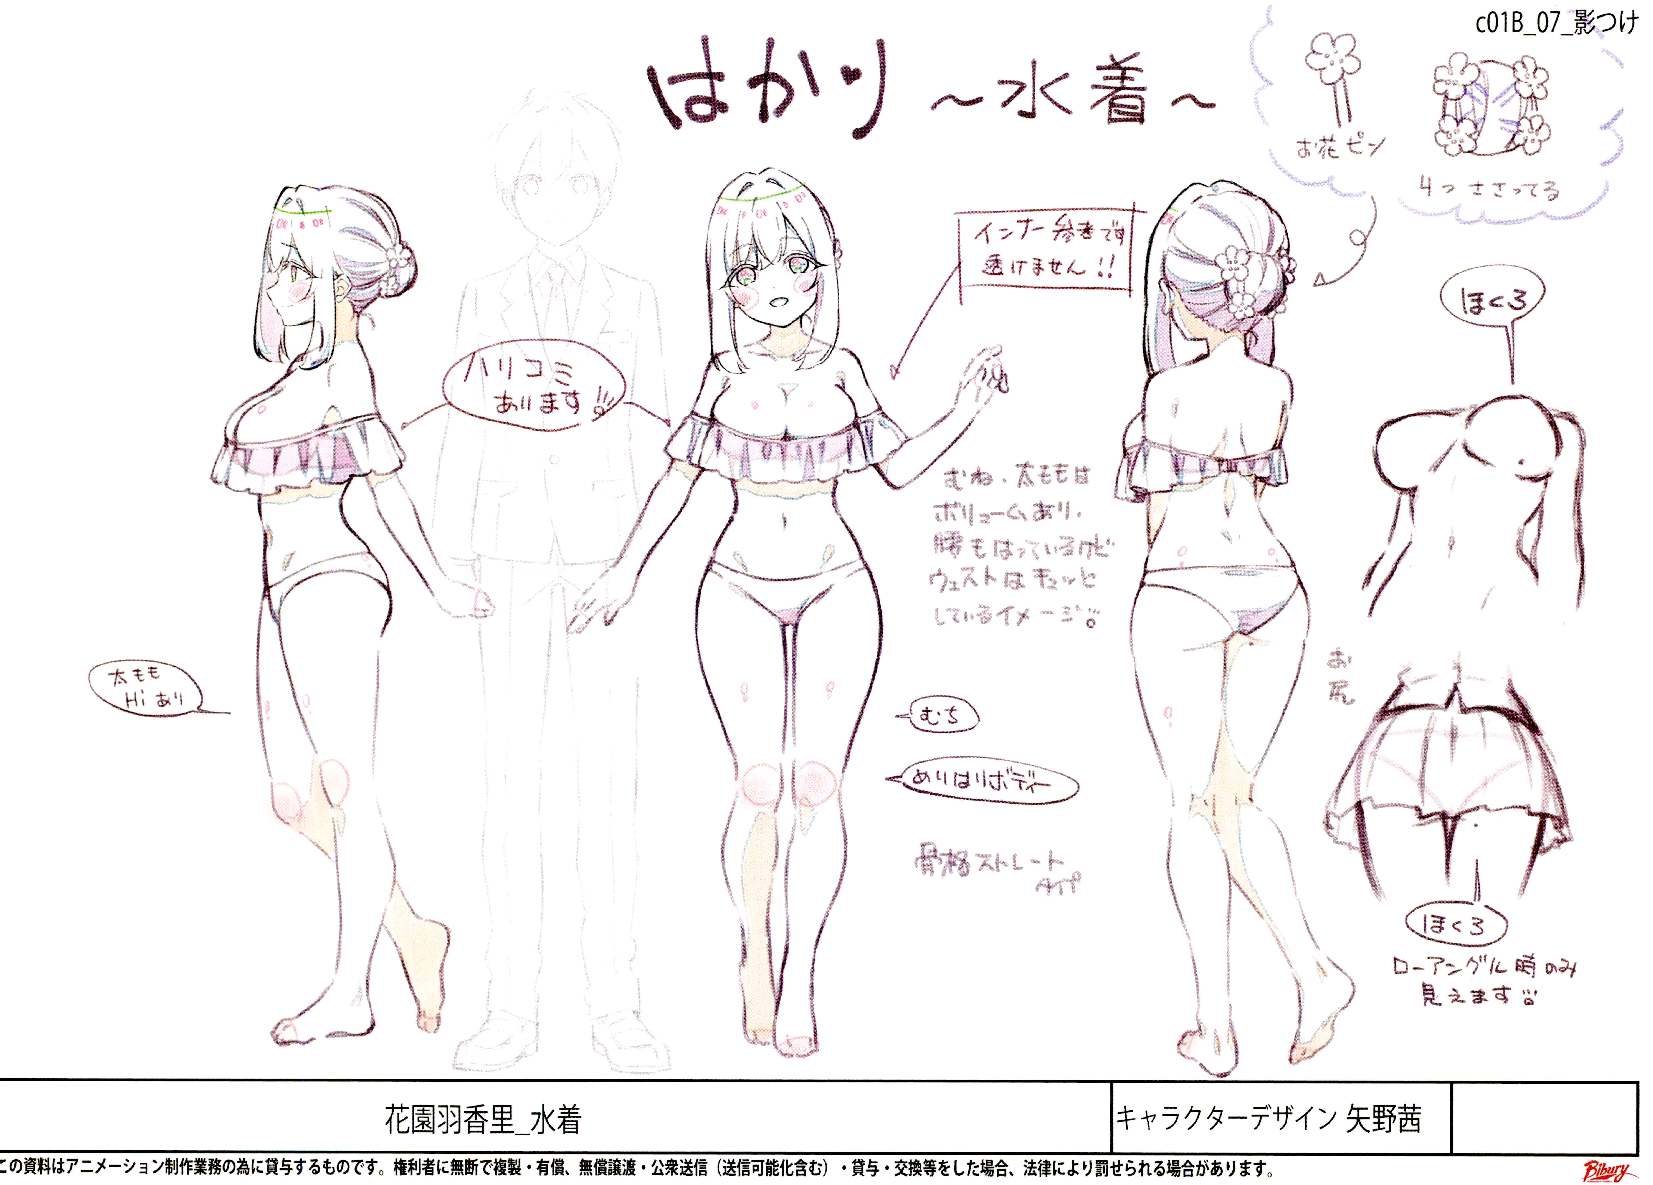 c01B_07_影つけ
はかり ～水着～
お花ピン
4つ ささってる
インナー参考です
透けません!!
ハリコミ
あります!!
ほくろ
むね・太ももは
ボリュームあり。
腰もはっているけど
ウェストはキュッと
しているイメージ
太もも
Hiあり
むち
めりはりボディー
骨格ストレート
タイプ
お
尻
ほくろ
ローアングル時のみ
見えます
花園羽香里_水着
キャラクターデザイン 矢野茜
この資料はアニメーション制作業務の為に貸与するものです。権利者に無断で複製・有償、無償譲渡・公衆送信（送信可能化含む）・貸与・交換等をした場合、法律により罰せられる場合があります。
Bibury